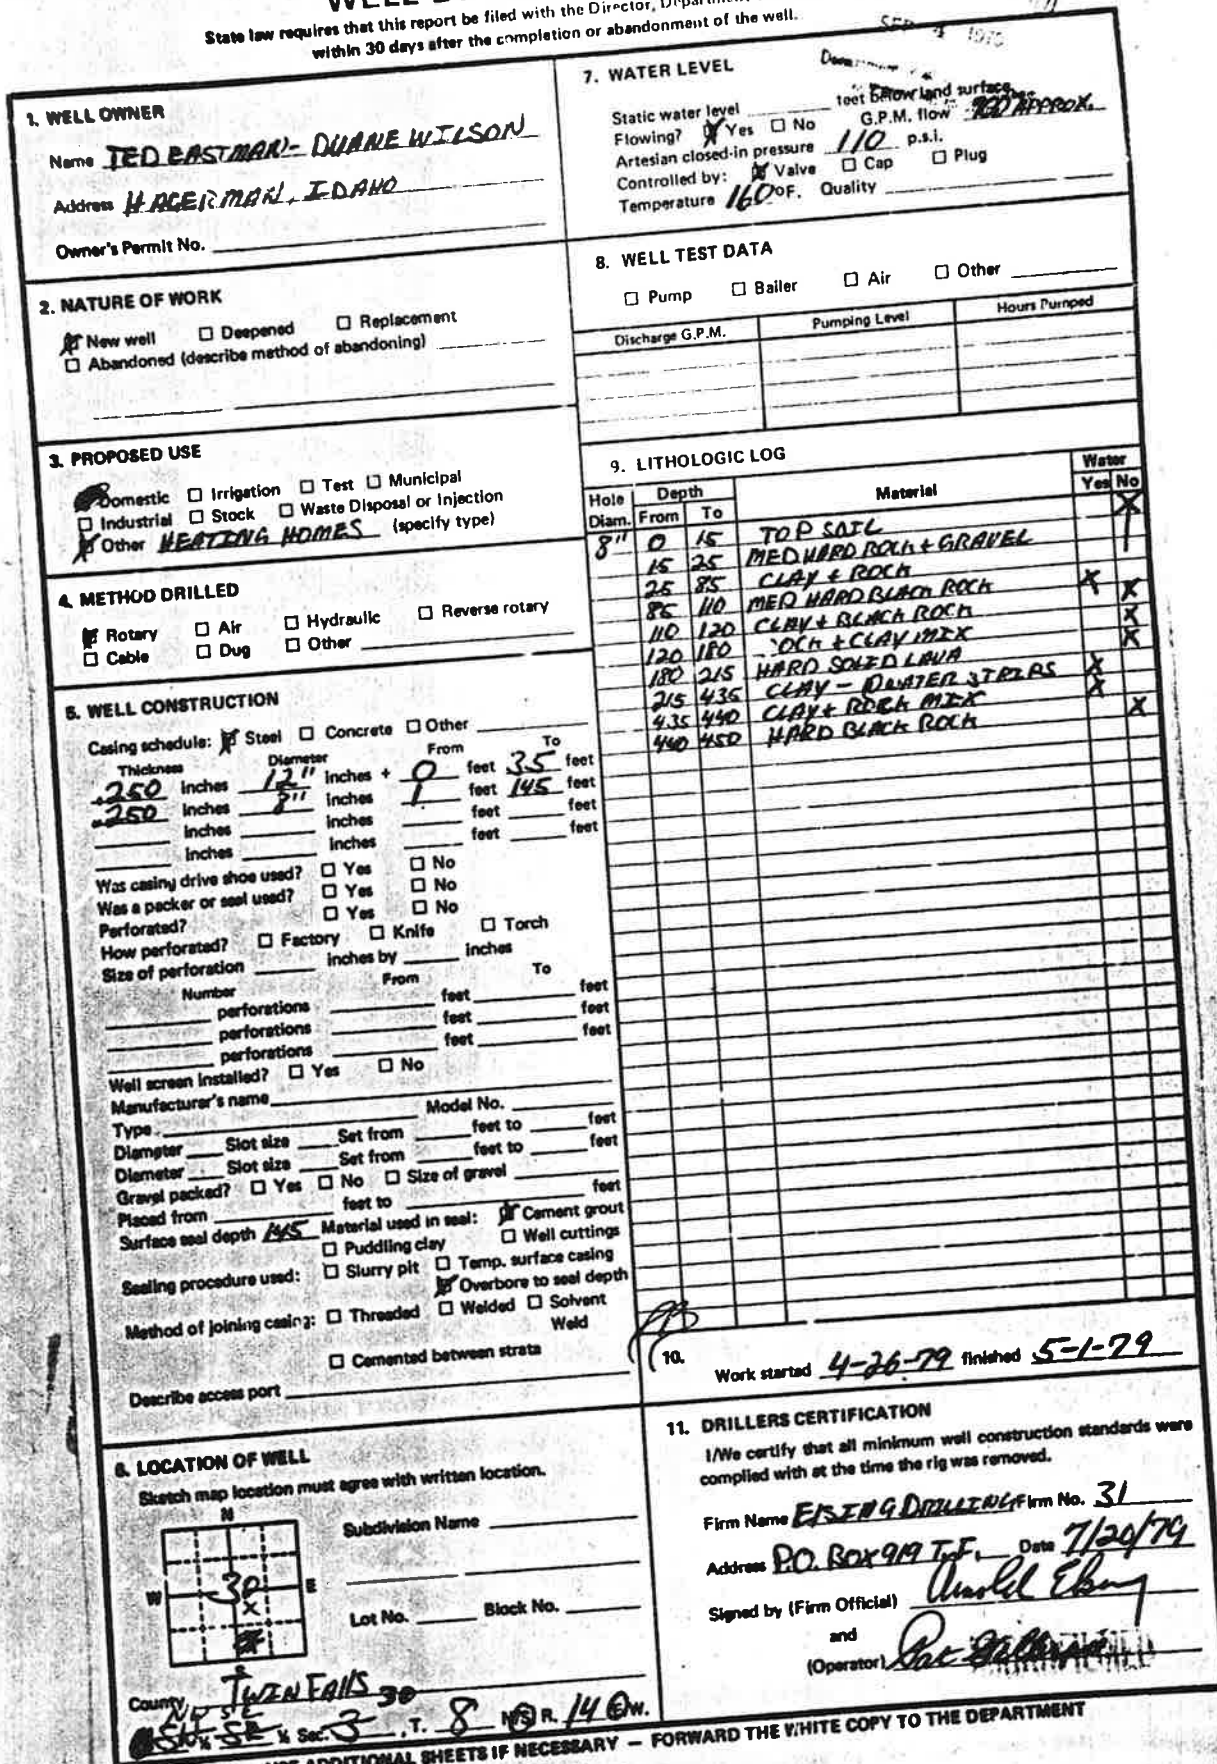 State law requires that this report be filed with the Director,
within 30 days after the completion or abandonment of the well.
1. WELL OWNER
Name TED EASTMAN - DUANE WILSON
Address HAGERMAN, IDAHO
Owner's Permit No.
2. NATURE OF WORK
New well □ Deepened □ Replacement
□ Abandoned (describe method of abandoning)
3. PROPOSED USE
Domestic □ Irrigation □ Test □ Municipal
□ Industrial □ Stock □ Waste Disposal or Injection
Other HEATING HOMES (specify type)
4. METHOD DRILLED
Rotary □ Air □ Hydraulic □ Reverse rotary
□ Cable □ Dug □ Other
5. WELL CONSTRUCTION
Casing schedule: Steel □ Concrete □ Other
Thickness Diameter From To
.250 inches 12" inches + 0 feet 35 feet
.250 inches 8" inches 1 feet 145 feet
inches inches feet feet
inches inches feet feet
Was casing drive shoe used? □ Yes □ No
Was a packer or seal used? □ Yes □ No
Perforated? □ Yes □ No
How perforated? □ Factory □ Knife □ Torch
Size of perforation inches by inches
Number From To
perforations feet feet
perforations feet feet
perforations feet feet
Well screen installed? □ Yes □ No
Manufacturer's name
Type Model No.
Diameter Slot size Set from feet to feet
Diameter Slot size Set from feet to feet
Gravel packed? □ Yes □ No □ Size of gravel
Placed from feet to feet
Surface seal depth 145 Material used in seal: Cement grout
□ Puddling clay □ Well cuttings
Sealing procedure used: □ Slurry pit □ Temp. surface casing
Overbore to seal depth
Method of joining casing: □ Threaded □ Welded □ Solvent
Weld
□ Cemented between strata
Describe access port
6. LOCATION OF WELL
Sketch map location must agree with written location.
N
W 30 E
X
S
Subdivision Name
Lot No. Block No.
County TWIN FALLS
30
SE
¼ SE ¼ Sec. 3, T. 8 N/S R. 14 E/W.
7. WATER LEVEL
SEP 4
Static water level feet below land surface.
Flowing? Yes □ No G.P.M. flow APPROX.
Artesian closed-in pressure 110 p.s.i.
Controlled by: Valve □ Cap □ Plug
Temperature 160 °F. Quality
8. WELL TEST DATA
□ Pump □ Bailer □ Air □ Other
Discharge G.P.M. Pumping Level Hours Pumped
9. LITHOLOGIC LOG
Hole Depth Material Water
Diam. From To Yes No
8" 0 15 TOP SOIL X
15 25 MED HARD ROCK + GRAVEL
25 85 CLAY & ROCK
85 110 MED HARD BLACK ROCK X
110 120 CLAY + BLACK ROCK X
120 180 OCK + CLAY MIX X
180 215 HARD SOLID LAVA X
215 435 CLAY - WATER STRIPS X
435 440 CLAY + ROCK MIX X
440 450 HARD BLACK ROCK X
10.
Work started 4-26-79 finished 5-1-79
11. DRILLERS CERTIFICATION
I/We certify that all minimum well construction standards were
complied with at the time the rig was removed.
Firm Name EISING DRILLING Firm No. 31
Address P.O. BOX 919 T.F. Date 7/20/79
Signed by (Firm Official) Arnold
and
(Operator) Pat
ADDITIONAL SHEETS IF NECESSARY — FORWARD THE WHITE COPY TO THE DEPARTMENT